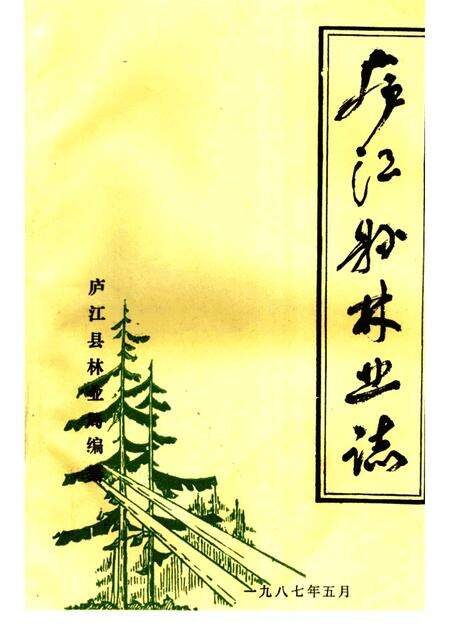 庐江县林业誌
庐江县林业局编
一九八七年五月